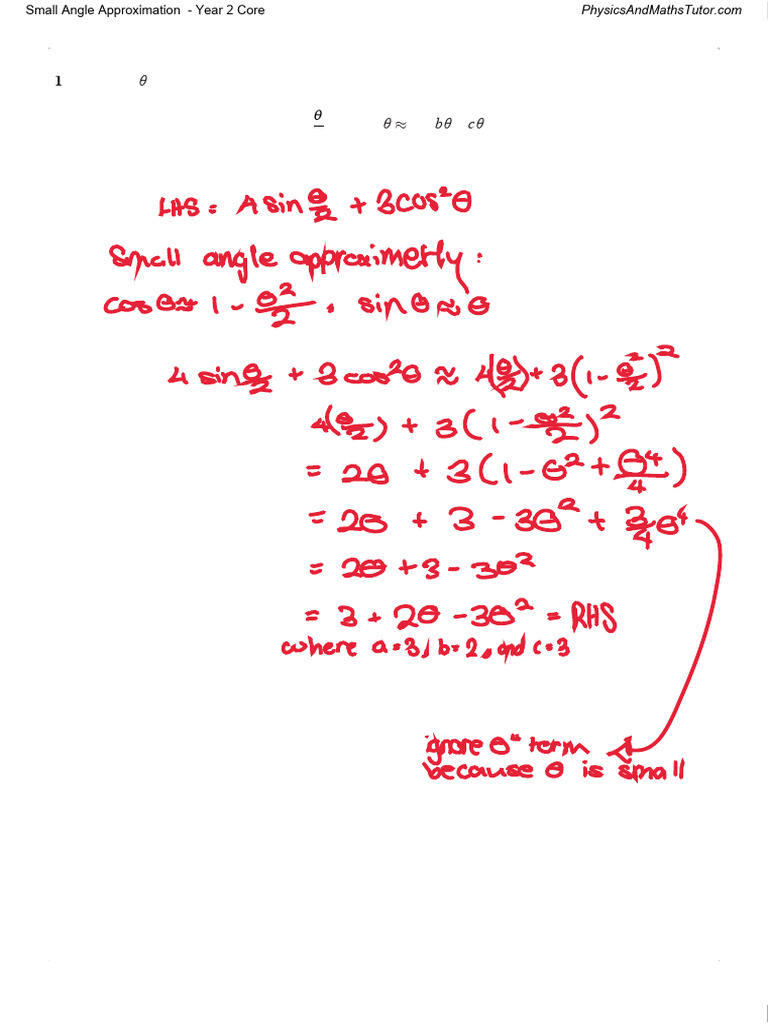 Small Angle Approximation - Year 2 Core PhysicsAndMathsTutor.com
1 θ
θ
θ ≈ bθ cθ
LHS = 4 sin θ/2 + 3cos²θ
Small angle approximetly :
cosθ ≈ 1 - θ²/2 , sin θ ≈ θ
4 sin θ/2 + 3 cos²θ ≈ 4(θ/2) + 3(1 - θ²/2)²
4(θ/2) + 3(1 - θ²/2)²
= 2θ + 3(1 - θ² + θ⁴/4)
= 2θ + 3 - 3θ² + 3/4 θ⁴
= 2θ + 3 - 3θ²
= 3 + 2θ - 3θ² = RHS
where a = 3, b = 2, and c = 3
ignore θ⁴ term
because θ is small